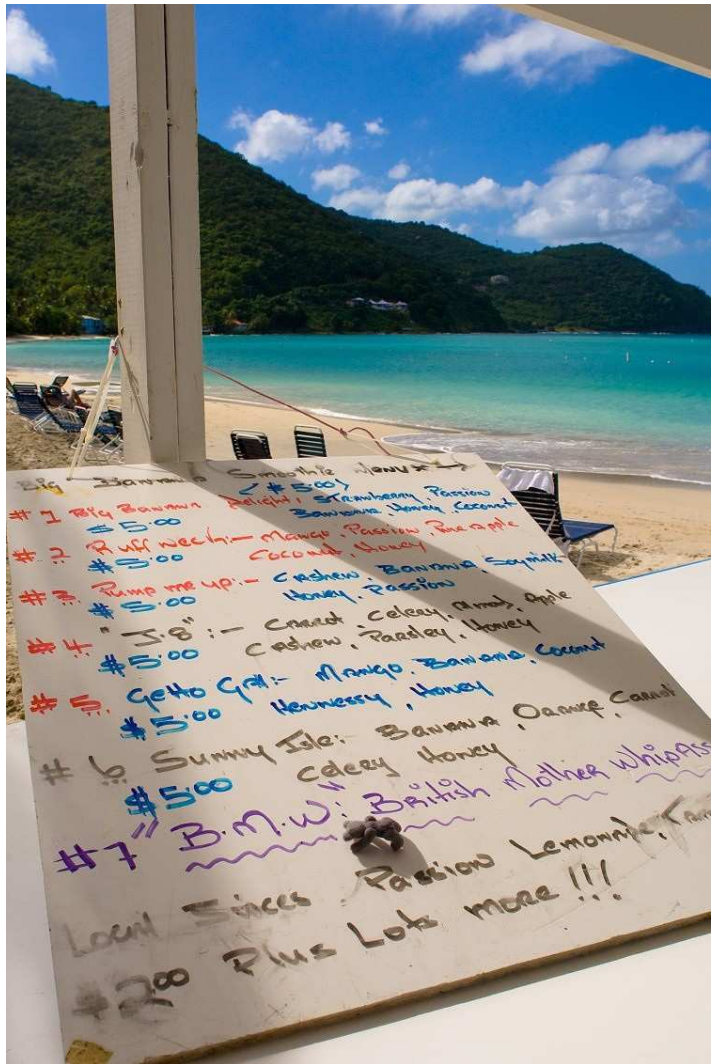 Big Banana Smoothie Menu
< $5.00 >
#1 Big Banana Delight, Strawberry, Passion
$5.00 Banana, Honey, Coconut
#2 Ruff neck:- Mango, Passion, Pineapple
$5.00 Coconut, Honey
#3 Pump me up:- Cashew, Banana, Soymilk
$5.00 Honey, Passion
#4 "J-8":- Carrot, Celery, Almond, Apple
$5.00 Cashew, Parsley, Honey
#5 Getto Gal:- Mango, Banana, Coconut
$5.00 Hennessy, Honey
#6 Sunny Isle: Banana, Orange, Carrot
$5.00 Celery Honey
#7 "B.M.W": British Mother WhipAss
Local Juices, Passion Lemonade,
$2.00 Plus Lots more!!!